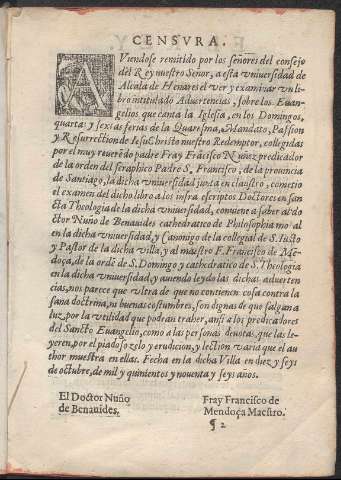 CENSVRA.
AViendose remitido por los señores del consejo
del Rey nuestro Señor, a esta vniuersidad de
Alcala de Henares el ver y examinar vn li-
bro intitulado Aduertencias, sobre los Euan-
gelios que canta la Iglesia, en los Domingos,
quartas y sextas ferias de la Quaresma, Mandato, Passion
y Resurrection de Iesu Christo nuestro Redemptor, collegidas
por el muy reuerẽdo padre Fray Frãcisco Nuñez predicador
de la orden del seraphico Padre S. Francisco, de la prouincia
de Santiago, la dicha vniuersidad junta en claustro, cometio
el examen del dicho libro a los infra escriptos Doctores en san
cta Theologia de la dicha vniuersidad, conuiene a saber al do
ctor Nuño de Benauides cathedratico de Philosophia moral
en la dicha vniuersidad, y Canonigo de la collegial de S. Iusto
y Pastor de la dicha villa, y al maestro F. Francisco de Mẽ-
doça, de la ordẽ de S. Domingo y cathedratico de S. Theologia
en la dicha vniuersidad, y auiendo leydo las dichas aduerten
cias, nos parece que vltra de que no contienen cosa contra la
sana doctrina, ni buenas costumbres, son dignas de que salgan a
luz, por la vtilidad que podran traher, ansi a los predicadores
del Sancto Euangelio, como a las personas deuotas, que las le-
yeren, por el piadoso zelo y erudicion, y lection varia que el au
thor muestra en ellas. Fecha en la dicha Villa en diez y seys
de octubre, de mil y quinientos y nouenta y seys años.
El Doctor Nuño
de Benauides.
Fray Francisco de
Mendoça Maestro.
¶ 2